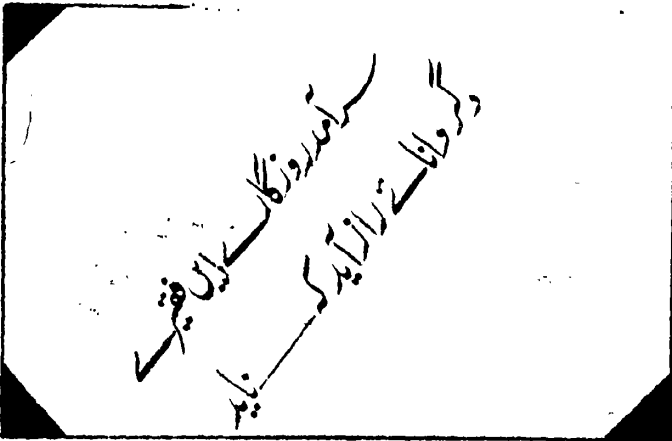 سر آمد روزگارے ایں فقیرے
دگر دانائے راز آید کہ ناید